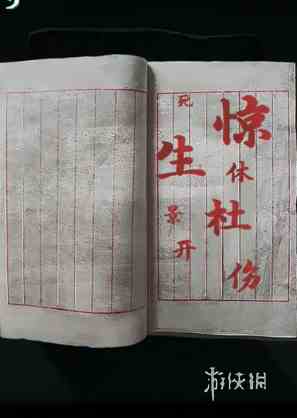 惊休杜伤
死生景开
游侠网